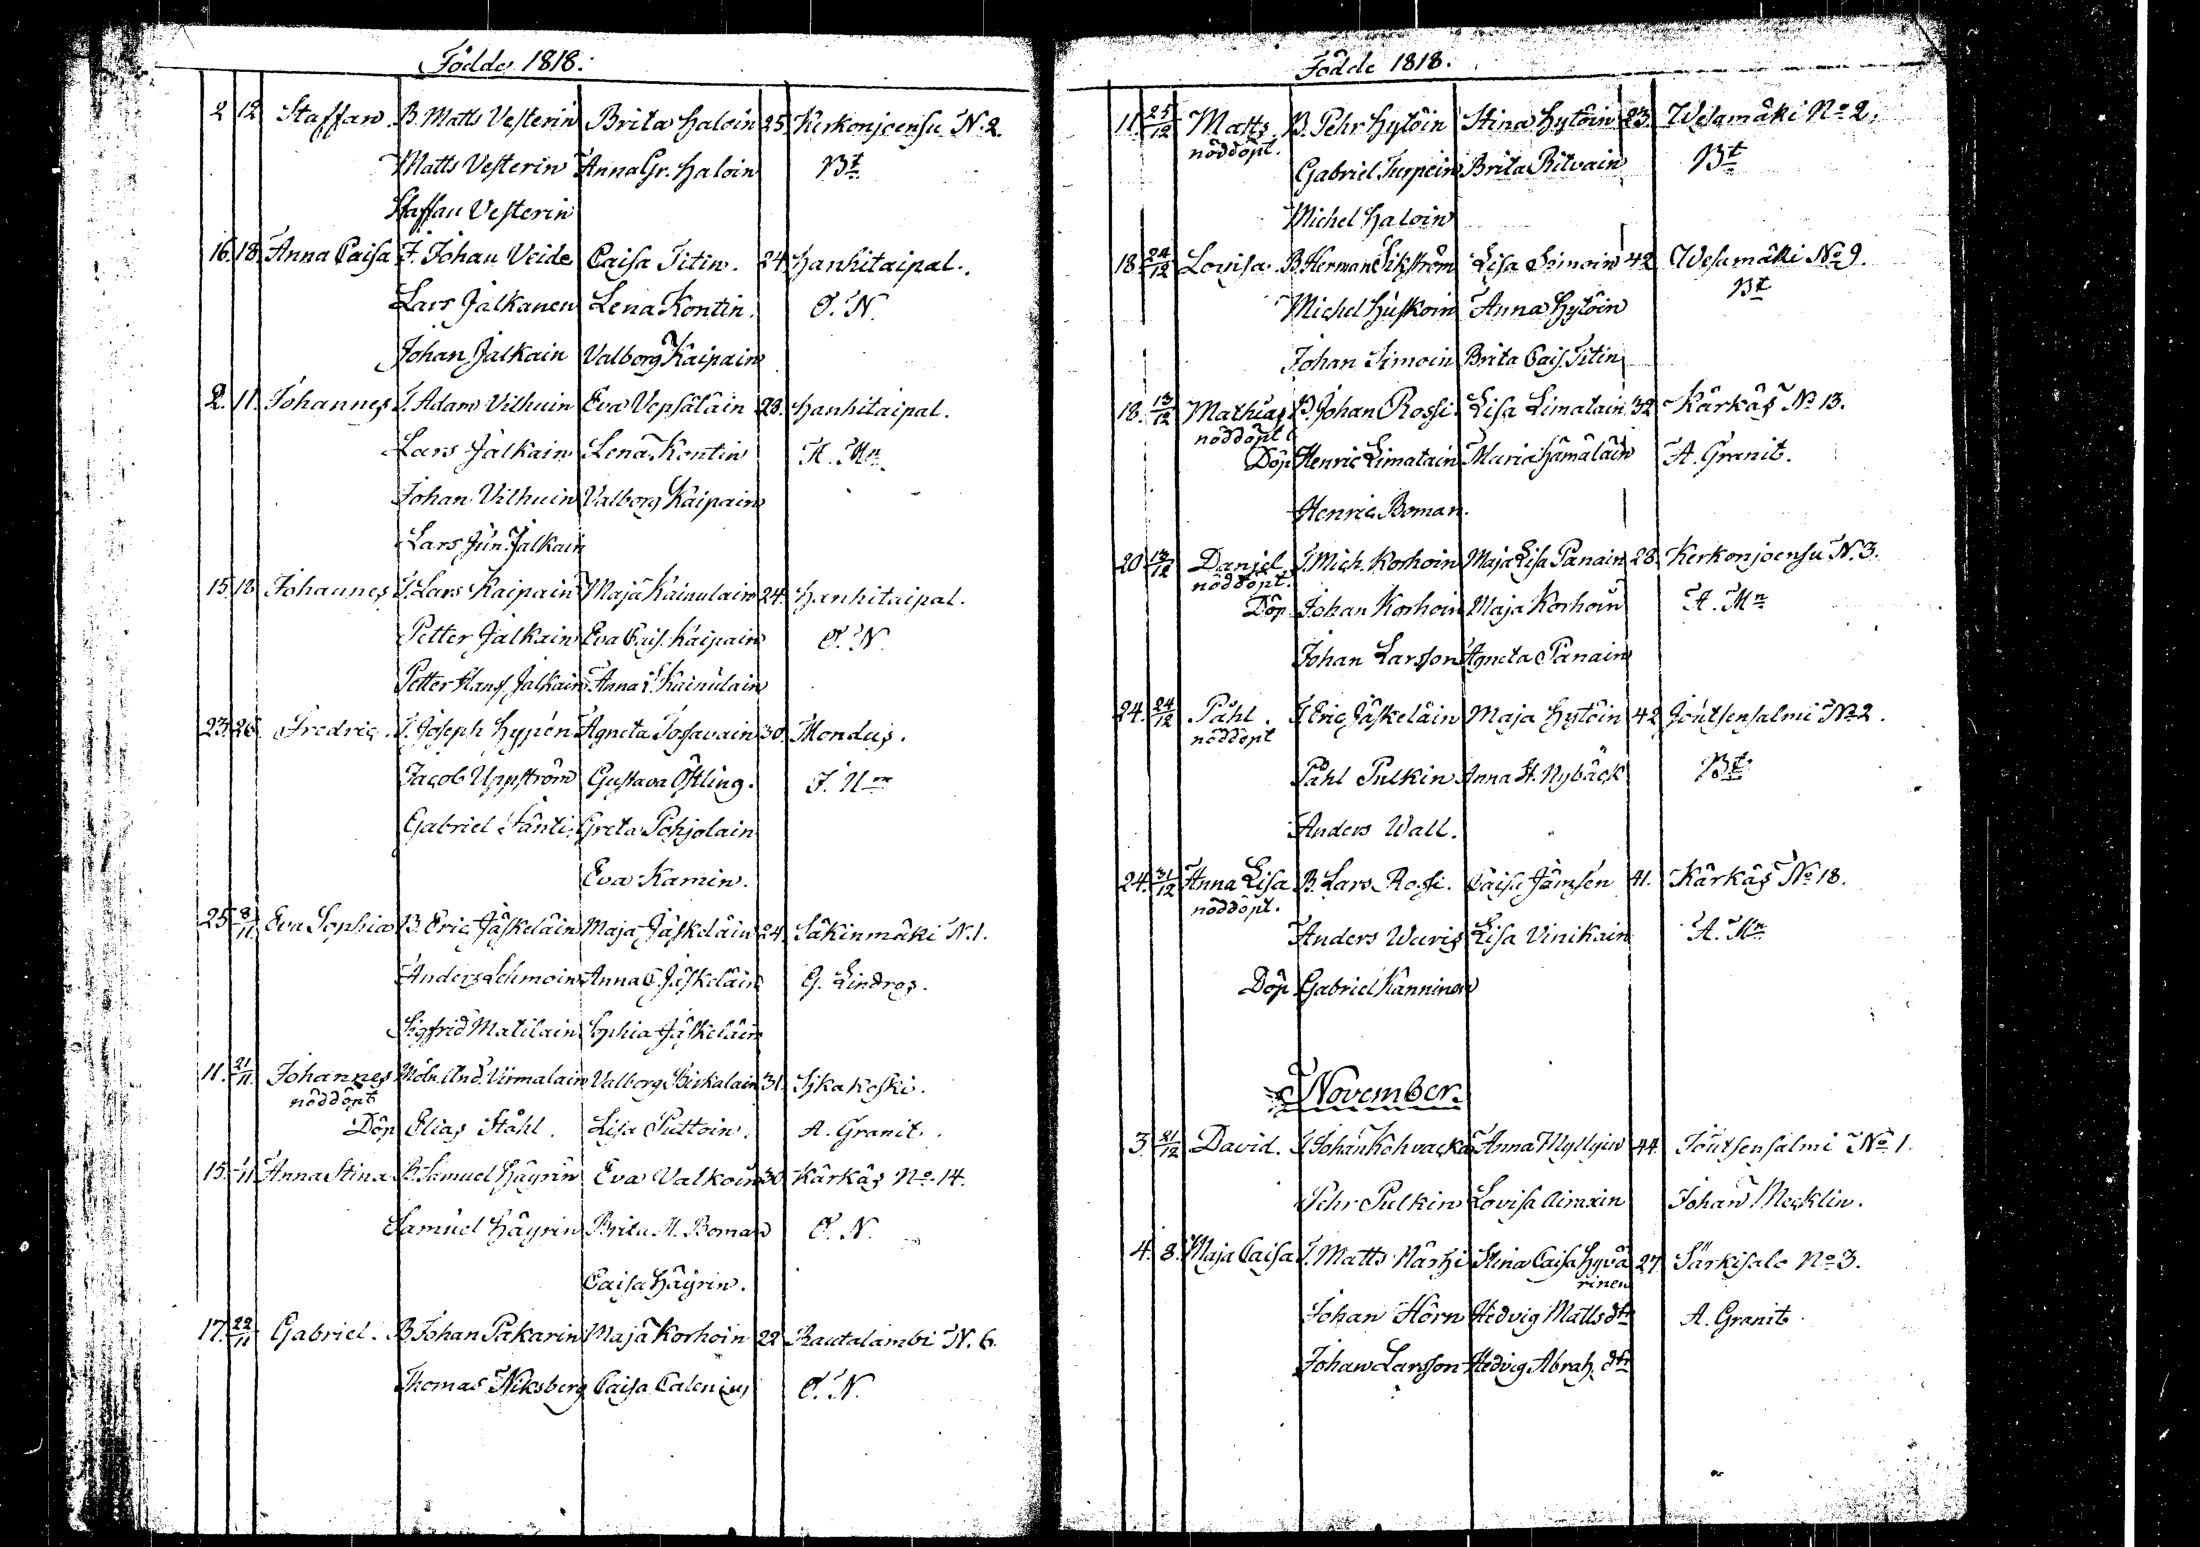 Födde 1818.
2 12 Staffan. B. Matts Vesterin Brita Haloin 25. Kerkonjoensu N. 2.
Matts Vesterin Anna Gr. Haloin Bt
Staffan Vesterin
16. 18. Anna Caisa Johan Veide Caisa Titin. 24. Hanhitaipal.
Lars Jalkanen Lena Kontin. O. N.
Johan Jalkain Valborg Kaipain
2. 11. Johannes T. Adam Vilhuin Eva Vepsäläin 28. Hanhitaipal.
Lars Jalkain Lena Kontin A. Mn
Johan Vilhuin Valborg Kaipain
Lars Jun. Jalkain
15. 18 Johannes T. Lars Kaipain Maja Kainulain 24. Hanhitaipal.
Petter Jalkain Eva Cais. Kaipain O. N.
Petter Hans Jalkain Anna Kainulain
23. 26 Fredric. T. Joseph Hypén Agneta Tossavain 30. Mondus.
Jacob Uppström Gustava Östling.
Gabriel Jänti Greta Pohjolain
Eva Kamin.
25 8/11 Eva Sophia B. Eric Jäskeläin Maja Jäskeläin 24. Säkinmäki N. 1.
Anders Lehmoin Anna C. Jäskeläin G. Lindros.
Sigfrid Matilain Sophia Jäskeläin
11. 21/11 Johannes And. Virmalain Valborg 31. Sikakoski.
nöddöpt
Döp Elias Ståhl. Lisa Puttoin. A. Granit.
15. 11 Anna Stina B. Samuel Häyrin Eva Valkoin 30 Kärkäs No. 14.
Samuel Häyrin Brita M. Boman O. N.
Caisa Häyrin.
17. 22/11 Gabriel. B Johan Pakarin Maja Korhoin 22 Rautalambi N. 6.
Thomas Niksberg Caisa Calenius O. N.
Födde 1818.
11. 25/12 Matts B. Pehr Hytöin Stina Hytöin 23. Wesamäki No 2.
nöddöpt.
Gabriel Turpein Brita Ritvain Bt
Michel Haloin
18. 24/12 Lovisa. B. Herman Sikström Lisa Simoin 42 Wesamäki No 9.
Michel Huskoin Anna Hytöin Bt
Johan Simoin Brita Cais. Titin
18. 13/12 Mathias Johan Rossi Lisa Limatain 32. Kärkäs No 13.
nöddöpt
Döp Henric Limatain Maria Hämäläin A. Granit.
Henric Boman.
20 13/12 Daniel T. Mich. Korhoin Maja Lisa Panain 28. Kerkonjoensu N. 3.
nöddöpt.
Döp Johan Korhoin Maja Korhoin A. Mn
Johan Larsson Agneta Panain
24. 24/12 Påhl. T. Eric Jäskeläin Maja Hytöin 42. Joutsensalmi No 2.
nöddöpt
Påhl Pulkin Anna St. Nybäck Bt
Anders Wall.
24. 31/12 Anna Lisa B. Lars Rossi. Caisa Jämsén 41. Kärkäs No 18.
nöddöpt.
Anders Waris Lisa Vinikain A. Mn
Döp Gabriel Känninen
November.
3. 21/12 David. T. Johan Kohvacka Anna Myllyin 44. Joutsensalmi No 1.
Pehr Pulkin Lovisa Airaxin Johan Mecklin.
4. 8. Maja Caisa T. Matts Närhi Stina Caisa Hyvä 27. Särkisalo No 3.
rinen
Johan Hörn Hedvig Matts dtr A. Granit
Johan Larsson Hedvig Abrah. dtr